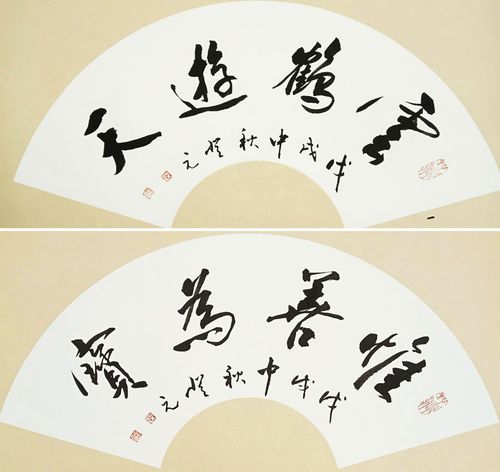 雲鶴遊天
戊戌中秋元
惟善為寶
戊戌中秋元